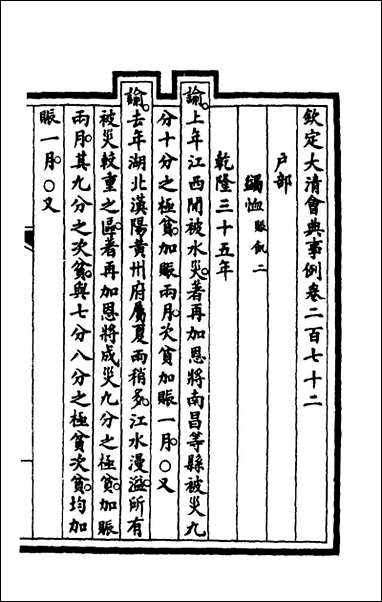 欽定大清會典事例卷二百七十二
戶部
蠲恤賑飢二
乾隆三十五年
諭上年江西間被水災著再加恩將南昌等縣被災九
分十分之極貧加賑兩月次貧加賑一月○又
諭去年湖北漢陽黃州府屬夏雨稍多江水漫溢所有
被災較重之區著再加恩將成災九分之極貧加賑
兩月其九分之次貧與七分八分之極貧次貧均加
賑一月○又